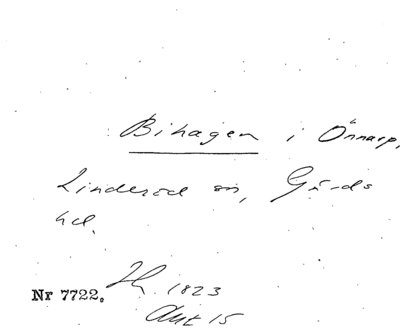 Bihagen i Önnarp,
Linderöd sn, Gärds
hd.
Nr 7722. 1823
Akt 15